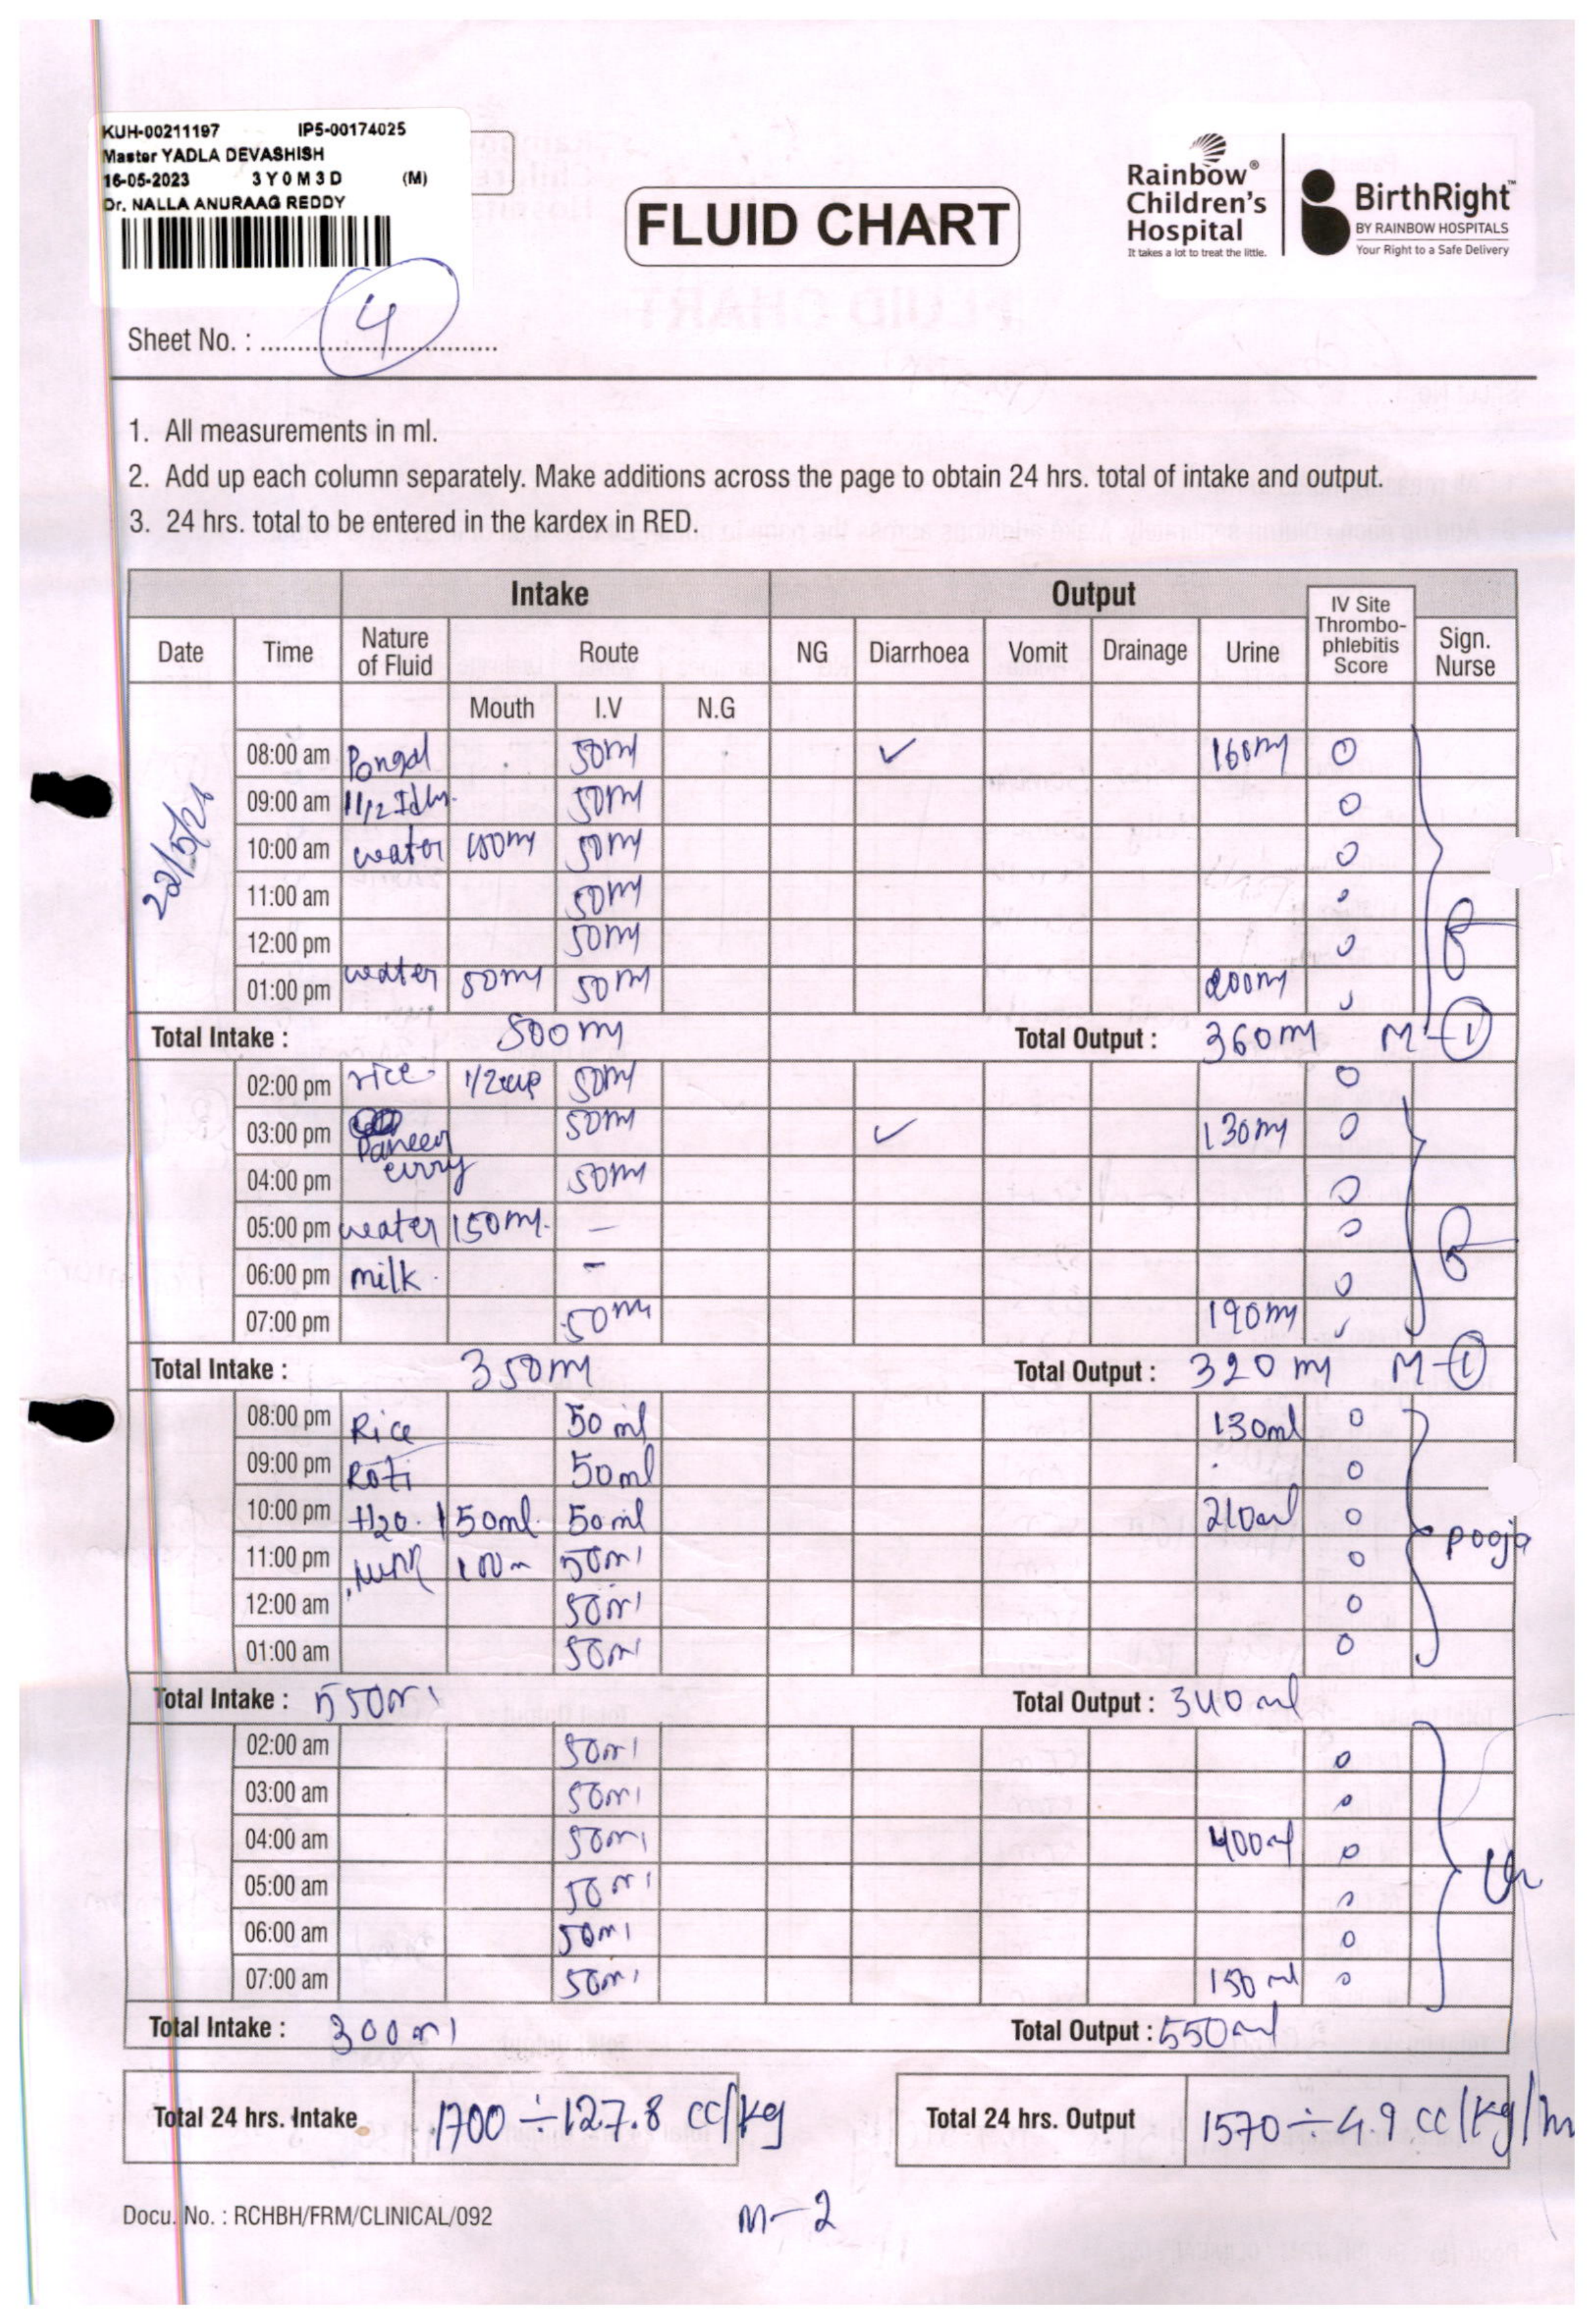 KUH-00211197 IP5-00174025
Master YADLA DEVASHISH
16-05-2023 3Y0M3D (M)
Dr. NALLA ANURAAG REDDY
FLUID CHART
Rainbow® Children's Hospital
It takes a lot to treat the little.
BirthRight™
BY RAINBOW HOSPITALS
Your Right to a Safe Delivery
Sheet No. : 4
1. All measurements in ml.
2. Add up each column separately. Make additions across the page to obtain 24 hrs. total of intake and output.
3. 24 hrs. total to be entered in the kardex in RED.
Intake Output
Date Time Nature of Fluid Route NG Diarrhoea Vomit Drainage Urine IV Site Thrombo-phlebitis Score Sign. Nurse
Mouth I.V N.G
08:00 am Pongal 50ml ✓ 160ml 0
09:00 am 50ml 0
10:00 am water 50ml 0
11:00 am 50ml
12:00 pm 50ml
01:00 pm water 50ml 50ml 200ml
Total Intake : 500ml Total Output : 360ml M-①
02:00 pm rice 1/2cup 50ml 0
03:00 pm Paneer 50ml ✓ 130ml 0
04:00 pm curry 50ml 0
05:00 pm water 150ml. – 0
06:00 pm milk – 0
07:00 pm 50ml 190ml
Total Intake : 350ml Total Output : 320ml M-①
08:00 pm Rice 50ml 130ml 0
09:00 pm Roti 50ml 0
10:00 pm H2O. 150ml. 50ml 210ml 0 pooja
11:00 pm 100m 50ml 0
12:00 am 50ml 0
01:00 am 50ml 0
Total Intake : 550ml Total Output : 340ml
02:00 am 50ml 0
03:00 am 50ml 0
04:00 am 50ml 400ml 0
05:00 am 50ml 0
06:00 am 50ml 0
07:00 am 50ml 150ml 0
Total Intake : 300ml Total Output : 550ml
Total 24 hrs. Intake 1700 ÷ 127.8 cc/kg Total 24 hrs. Output 1570 ÷ 4.9 cc/kg/
Docu. No. : RCHBH/FRM/CLINICAL/092
M-2